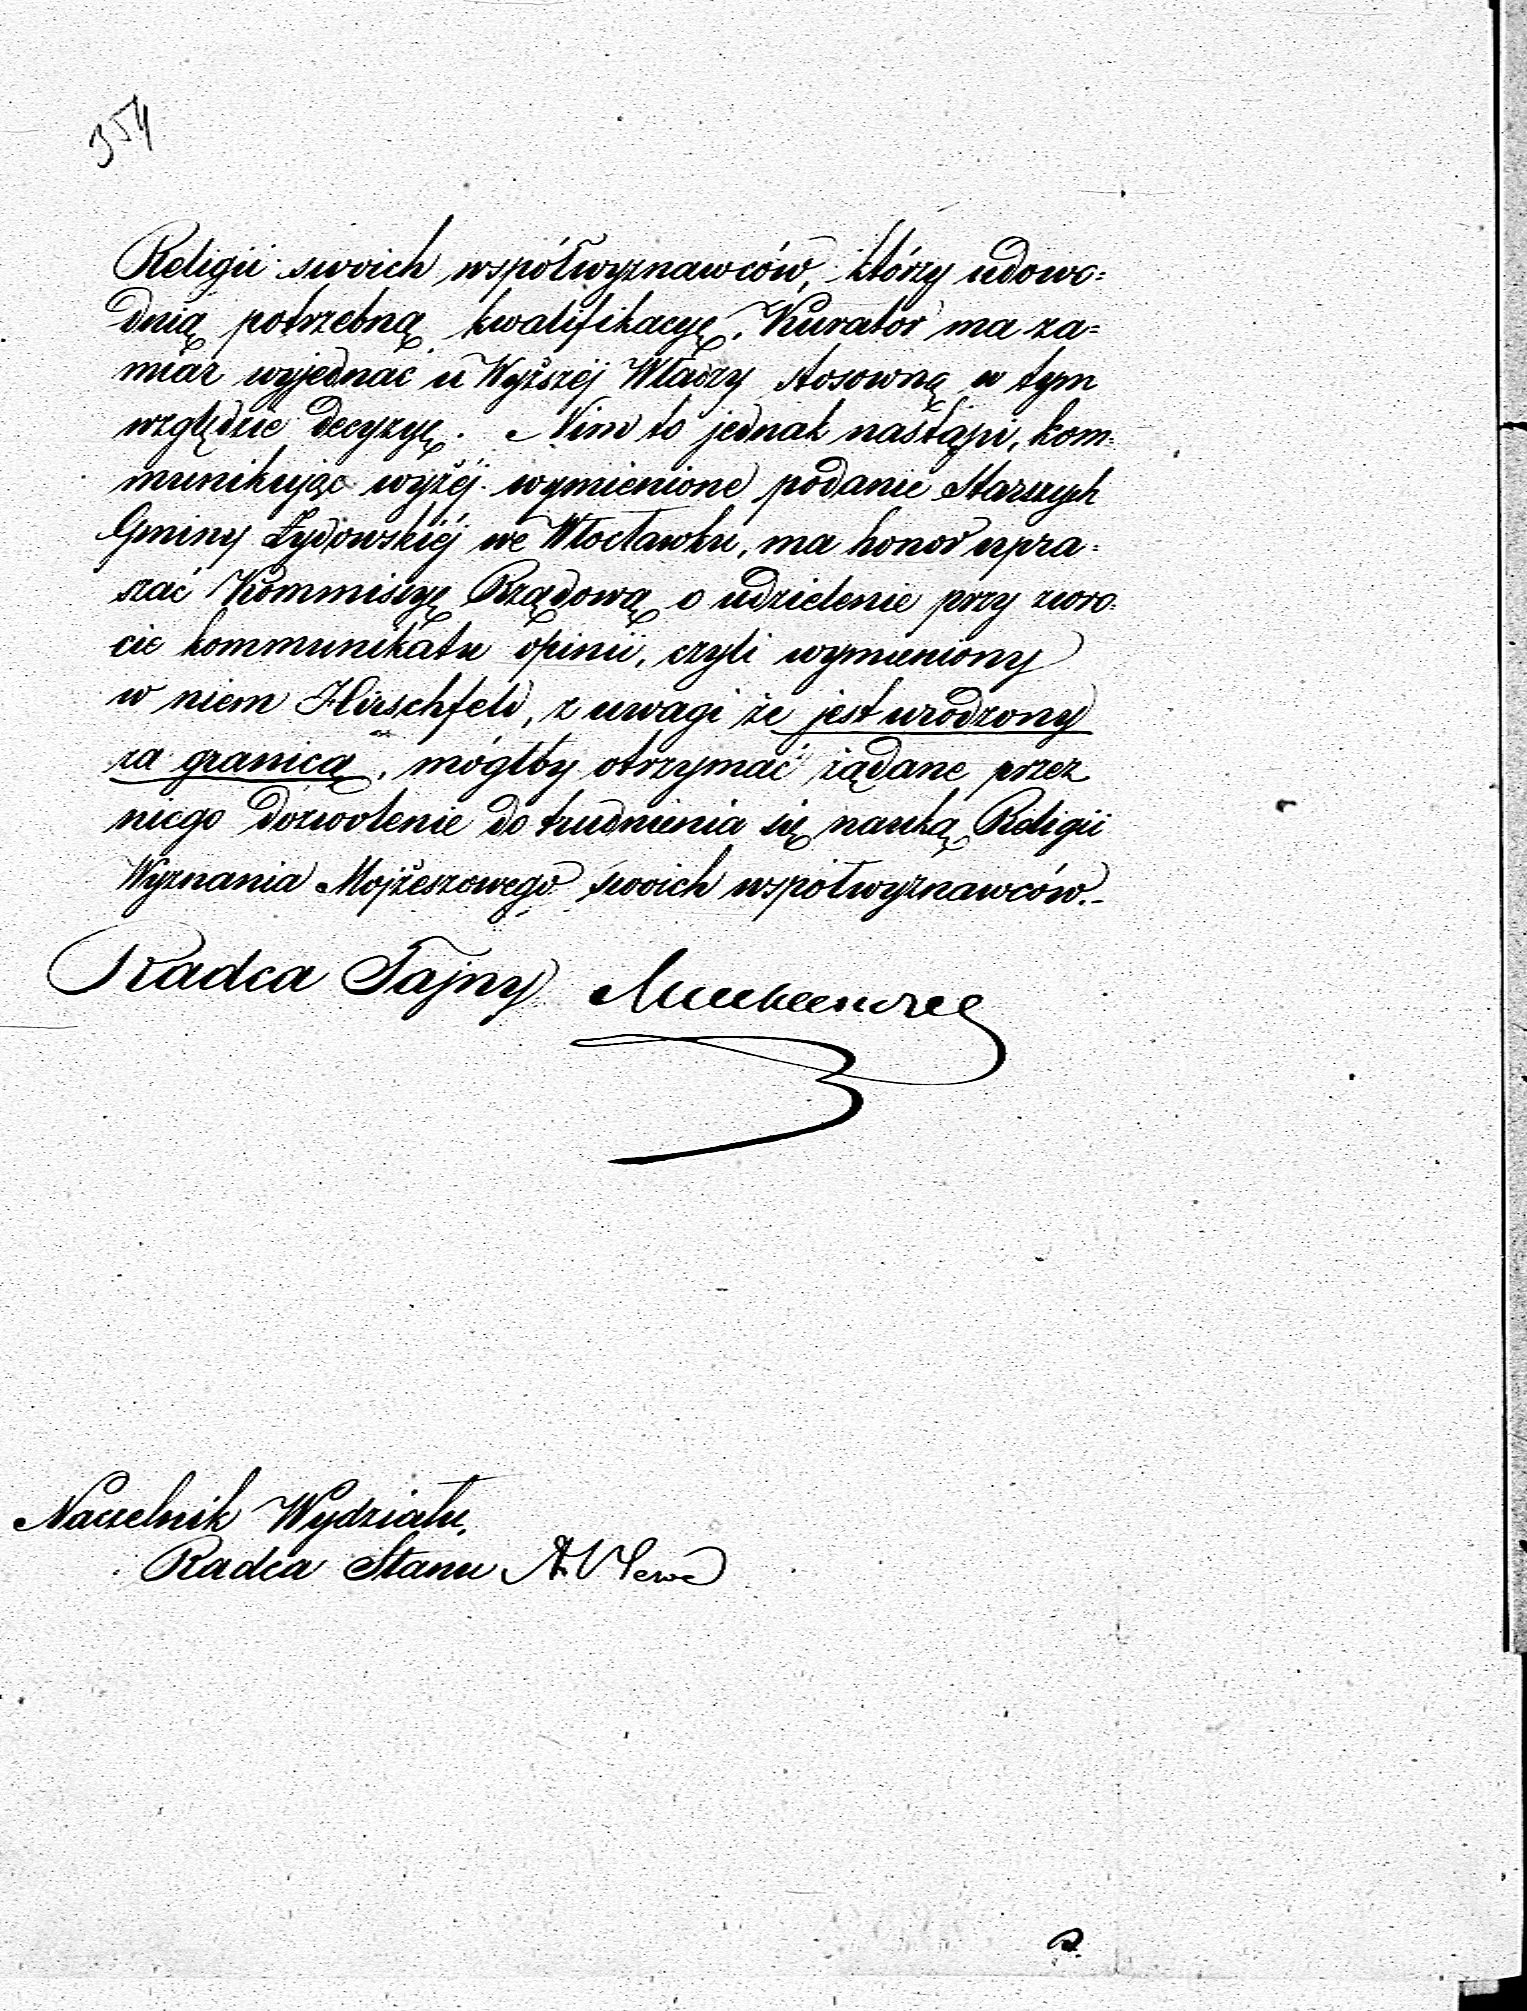 354
Religii swoich współwyznawców, którzy udowo=
dnią potrzebną kwalifikacyę, Kurator ma za=
miar wyjednać u Wyższéj Władzy stosowną w tym
względzie decyzyę. Nim to jednak nastąpi, kom=
munikując wyżéj wymienione podanie Starszych
Gminy Żydowskiéj we Włocławku, ma honor upra=
szać Kommisyę Rządową o udzielenie przy zwro=
cie kommunikatu opinii, czyli wymieniony
w niem Hirschfeld, z uwagi że jest urodzony
za granicą, mógłby otrzymać żądane przez
niego dozwolenie do trudnienia się nauką Religii
Wyznania Mojżeszowego swoich współwyznawców.-
Radca Tajny
Naczelnik Wydziału,
Radca Stanu